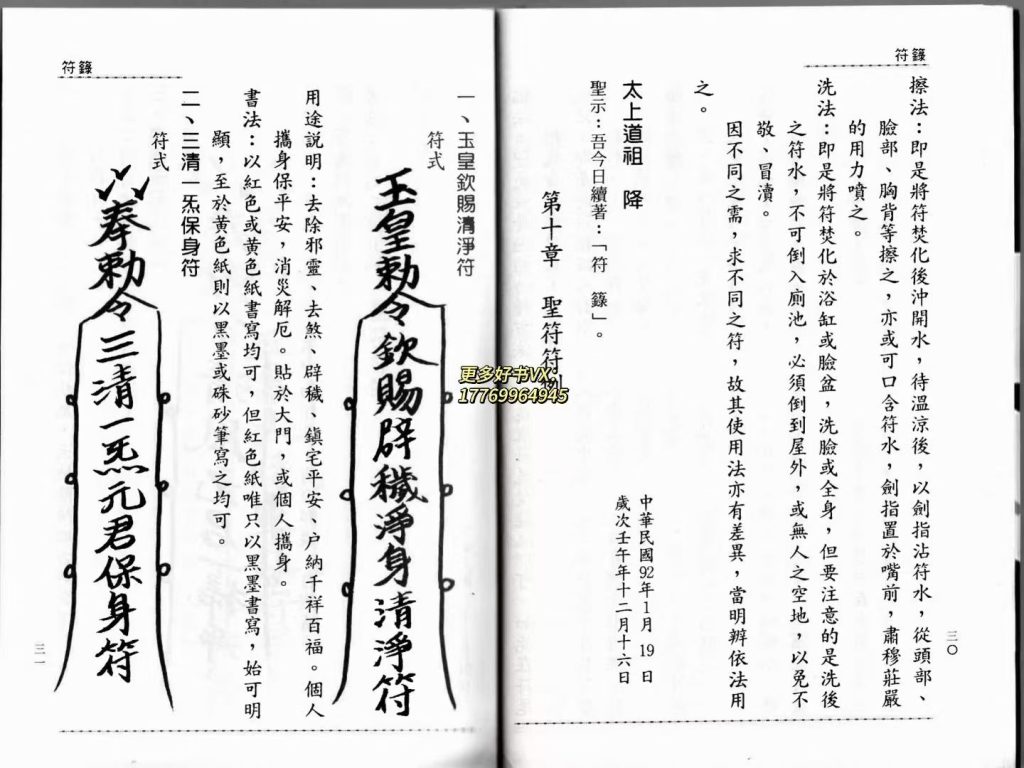 符籙
擦法：即是將符焚化後沖開水，待溫涼後，以劍指沾符水，從頭部、
臉部、胸背等擦之，亦或可口含符水，劍指置於嘴前，肅穆莊嚴
的用力噴之。
洗法：即是將符焚化於浴缸或臉盆，洗臉或全身，但要注意的是洗後
之符水，不可倒入廁池，必須倒到屋外，或無人之空地，以免不
敬、冒瀆。
因不同之需，求不同之符，故其使用法亦有差異，當明辨依法用
之。
中華民國92年1月19日
歲次壬午年十二月十六日
太上道祖　降
聖示：吾今日續著：「符　籙」。
第十章　聖符符
三○
更多好书VX：
17769964945
符籙
一、玉皇欽賜清淨符
符式
玉皇勅令欽賜辟穢淨身清淨符
用途説明：去除邪靈、去煞、辟穢、鎮宅平安、户納千祥百福。個人
攜身保平安，消災解厄。貼於大門，或個人攜身。
書法：以紅色或黄色紙書寫均可，但紅色紙唯只以黑墨書寫，始可明
顯，至於黄色紙則以黑墨或硃砂筆寫之均可。
二、三清一炁保身符
符式
奉勅令三清一炁元君保身符
三一